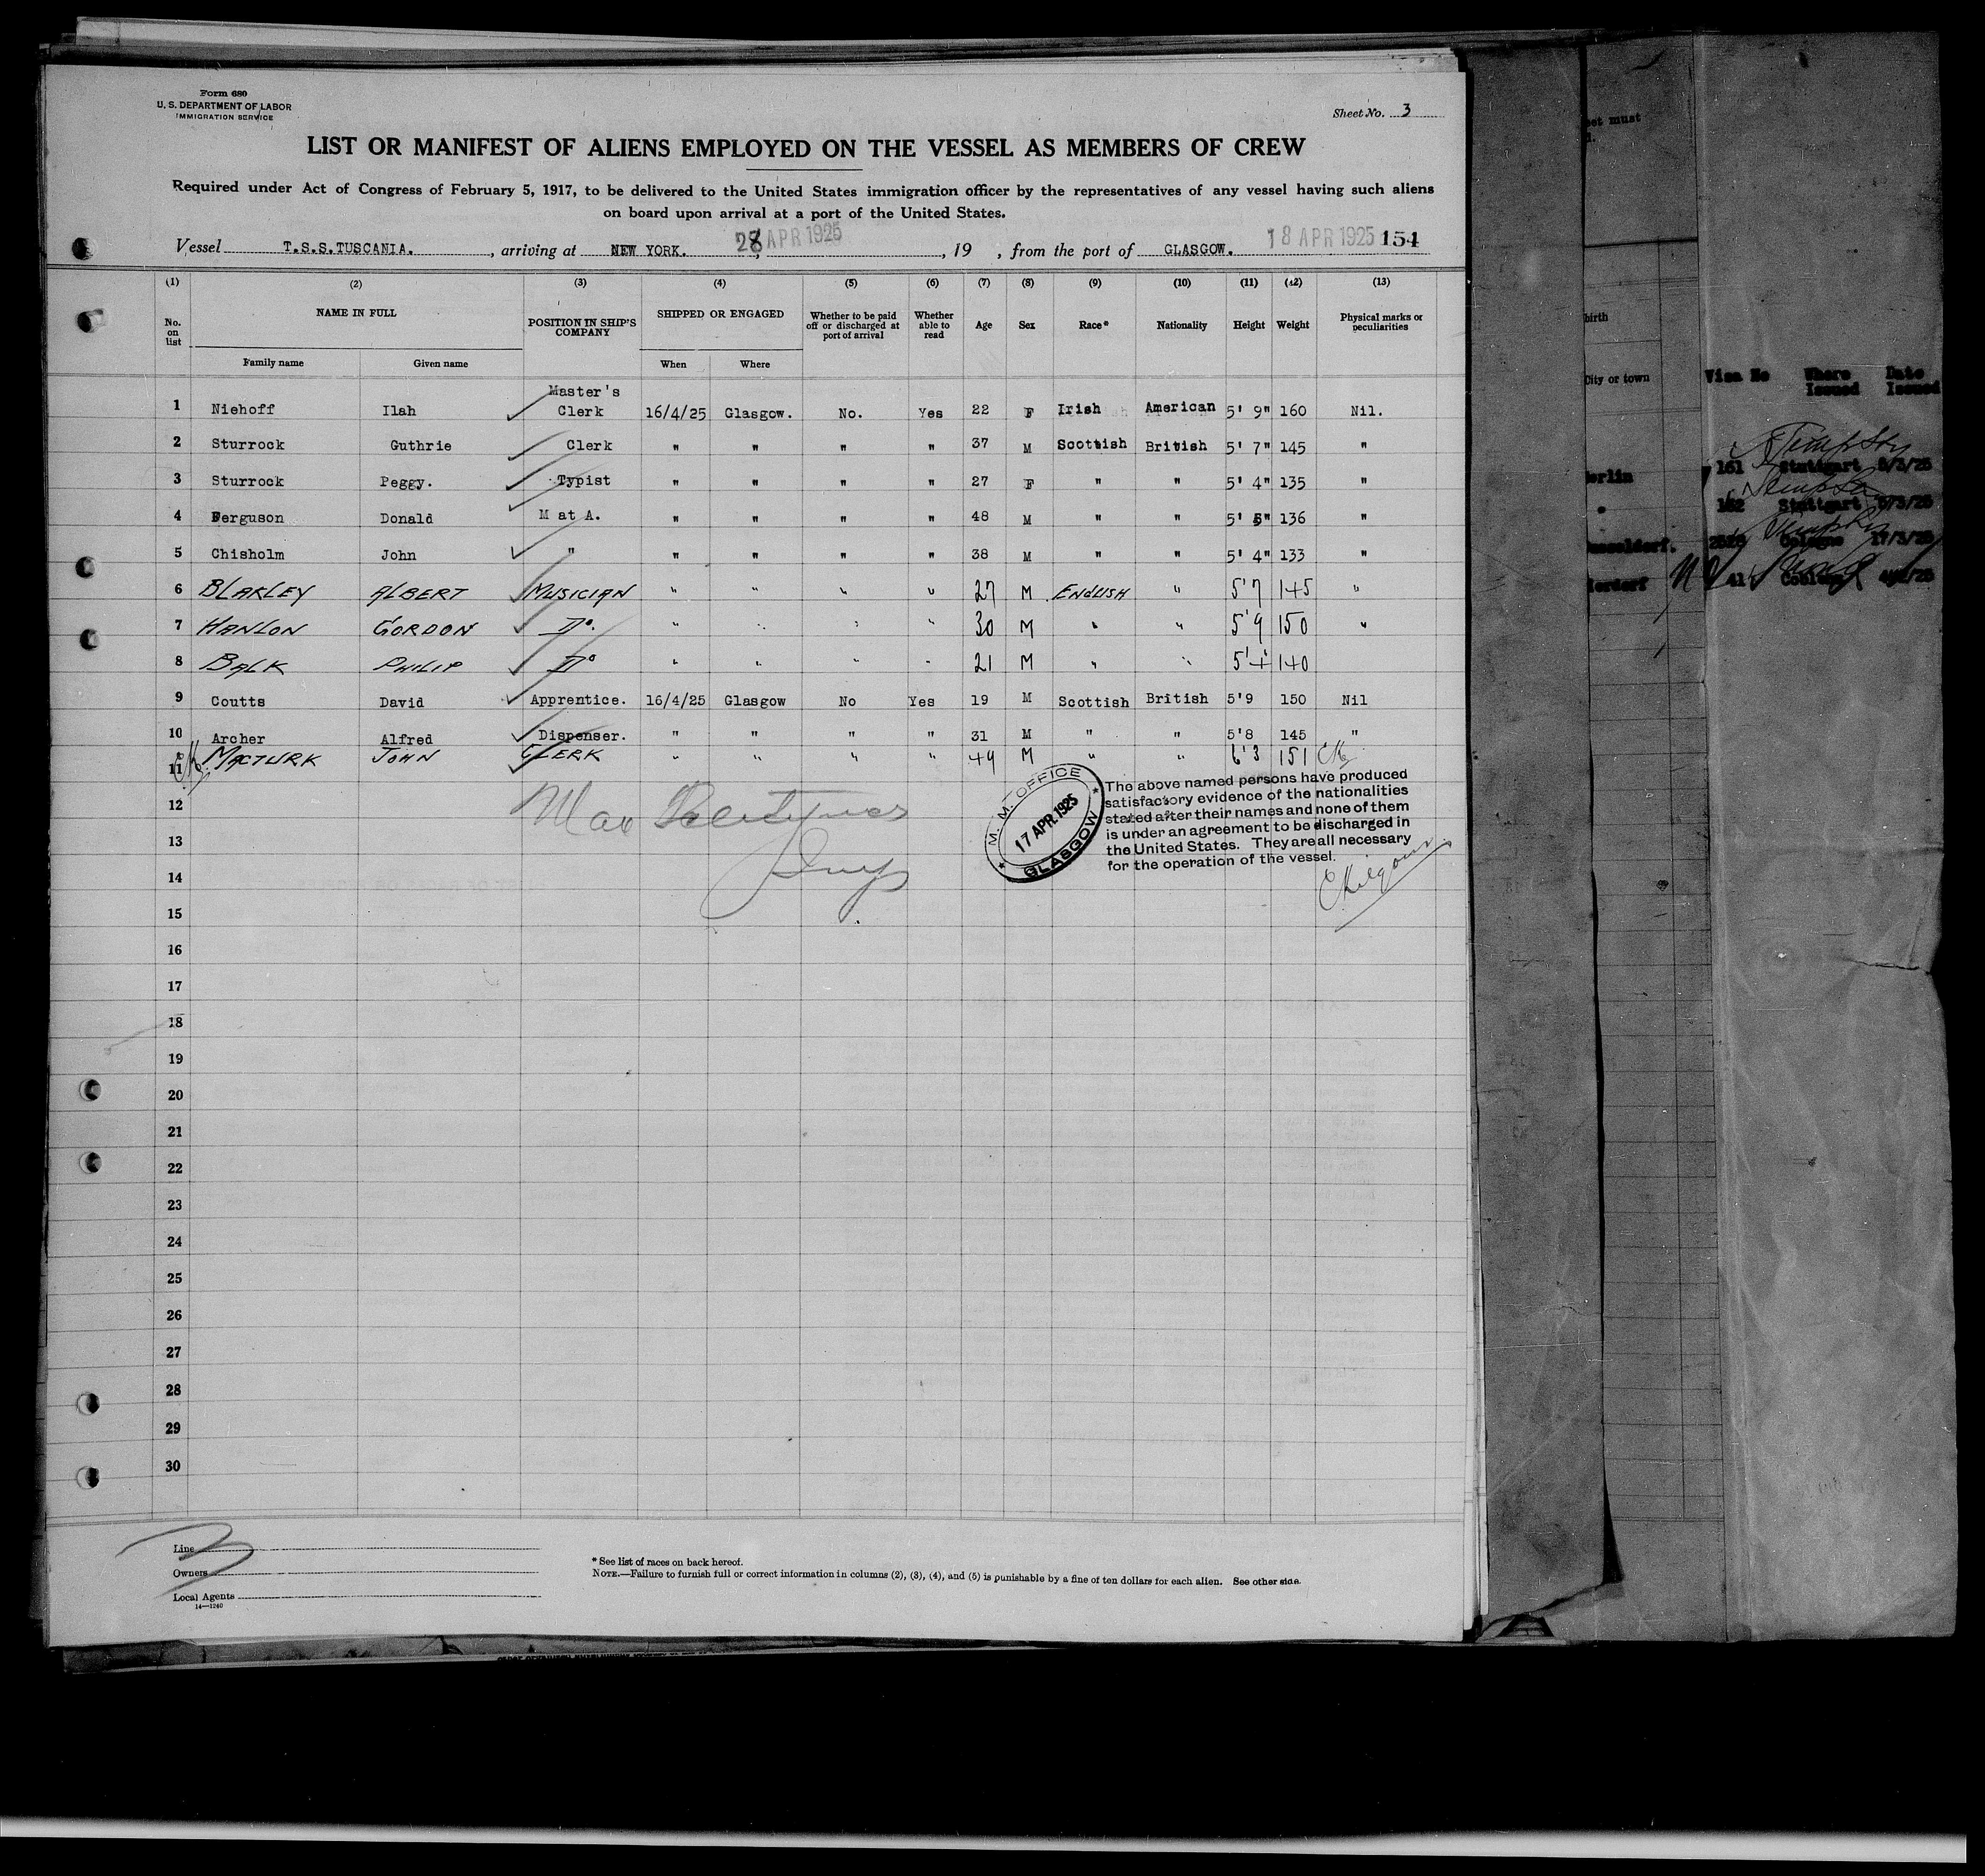 Form 680
U. S. DEPARTMENT OF LABOR
IMMIGRATION SERVICE
Sheet No. 3
LIST OR MANIFEST OF ALIENS EMPLOYED ON THE VESSEL AS MEMBERS OF CREW
Required under Act of Congress of February 5, 1917, to be delivered to the United States immigration officer by the representatives of any vessel having such aliens
on board upon arrival at a port of the United States.
Vessel T.S.S.TUSCANIA. , arriving at NEW YORK. 28 APR 1925 , 19 , from the port of GLASGOW. 18 APR 1925 154
(1) (2) (3) (4) (5) (6) (7) (8) (9) (10) (11) (12) (13)
No. on list NAME IN FULL POSITION IN SHIP'S COMPANY SHIPPED OR ENGAGED Whether to be paid off or discharged at port of arrival Whether able to read Age Sex Race* Nationality Height Weight Physical marks or peculiarities
Family name Given name When Where
1 Niehoff Ilah Master's Clerk 16/4/25 Glasgow. No. Yes 22 F Irish American 5' 9" 160 Nil.
2 Sturrock Guthrie Clerk " " " " 37 M Scottish British 5' 7" 145 "
3 Sturrock Peggy. Typist " " " " 27 F " " 5' 4" 135 "
4 Ferguson Donald M at A. " " " " 48 M " " 5' 5" 136 "
5 Chisholm John " " " " " 38 M " " 5' 4" 133 "
6 BLAKLEY ALBERT MUSICIAN " " " " 27 M ENGLISH " 5'7 145 "
7 HANLON GORDON Do. " " " " 30 M " " 5'9 150 "
8 BALK PHILIP Do " " " " 21 M " " 5'4 140
9 Coutts David Apprentice. 16/4/25 Glasgow No Yes 19 M Scottish British 5'9 150 Nil
10 Archer Alfred Dispenser. " " " " 31 M " " 5'8 145 "
11 MACTURK JOHN CLERK " " " " 49 M " " 6'3 151 CK
12
13
14
15
16
17
18
19
20
21
22
23
24
25
26
27
28
29
30
M. M. OFFICE
17 APR. 1925
GLASGOW
The above named persons have produced
satisfactory evidence of the nationalities
stated after their names and none of them
is under an agreement to be discharged in
the United States. They are all necessary
for the operation of the vessel.
CKilgour
Line
Owners
Local Agents
14—1240
* See list of races on back hereof.
NOTE.—Failure to furnish full or correct information in columns (2), (3), (4), and (5) is punishable by a fine of ten dollars for each alien. See other side.
must
birth
City or town
Visa No Where Issued Date Issued
161 Stuttgart 5/3/25
162 Stuttgart
Cologne 17/3/25
41